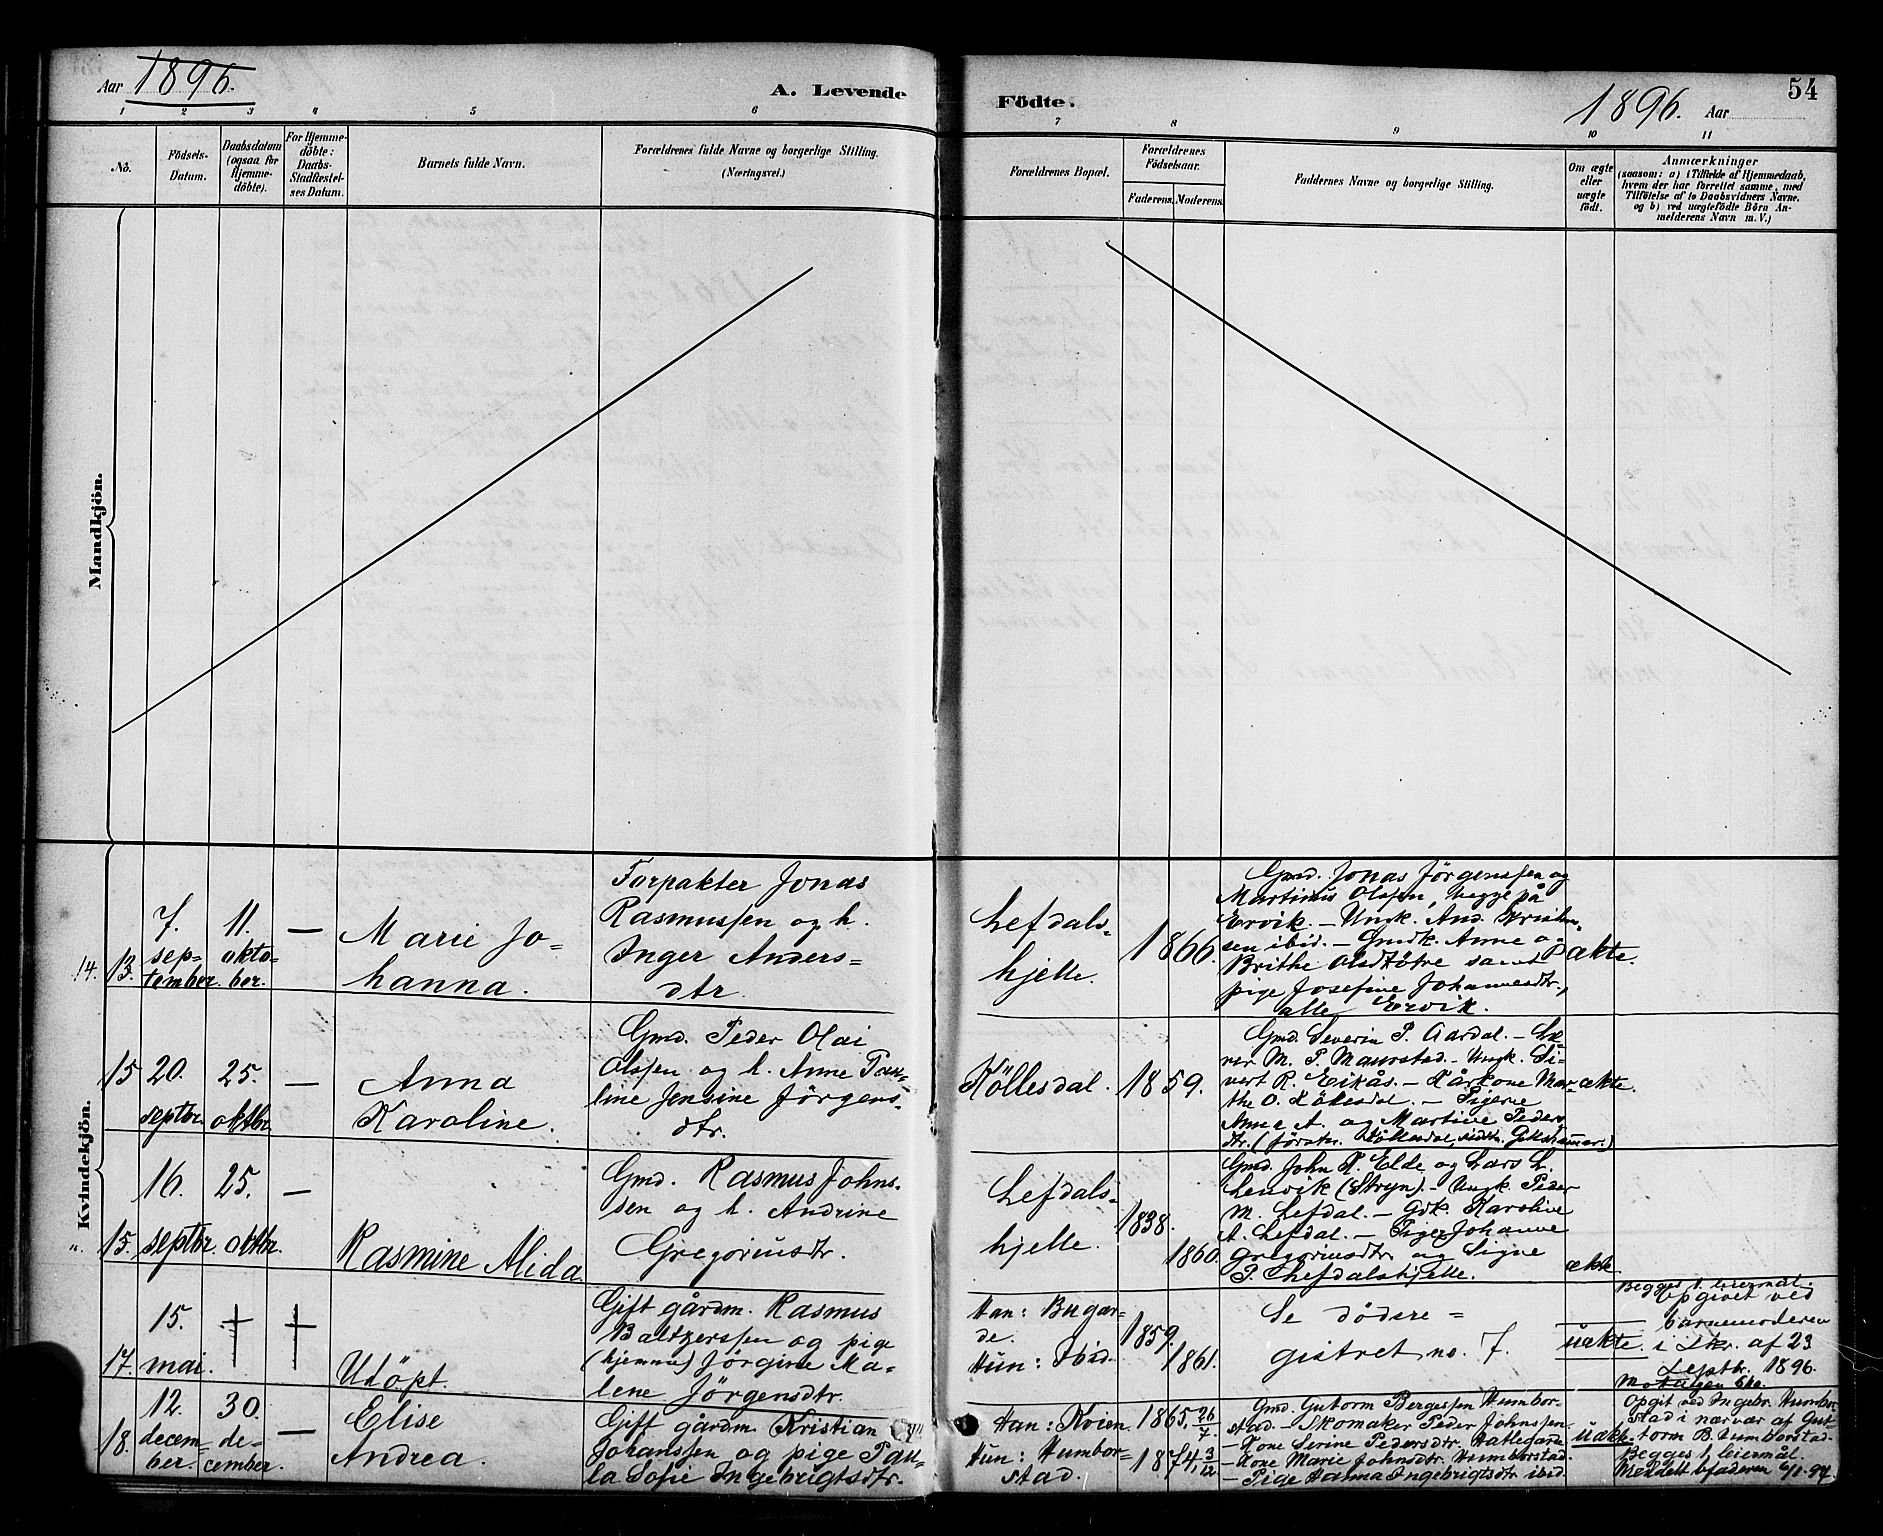 Aar 1896.
A. Levende
Födte.
1896. Aar
54
1 2 3 4 5 6 7 8 9 10 11
No.
Födsels-
Datum.
Daabsdatum
(ogsaa for
Hjemme-
döbte).
For Hjemme-
döbte:
Daabs-
Stadfæstel-
ses Datum.
Barnets fulde Navn.
Forældrenes fulde Navne og borgerlige Stilling.
(Næringsvei.)
Forældrenes Bopæl.
Forældrenes
Födselsaar.
Faderens.
Moderens.
Faddernes Navne og borgerlige Stilling.
Om ægte
eller
uægte
født.
Anmærkninger
(saasom: a) i Tilfælde af Hjemmedaab,
hvem der har forrettet samme, med
Tilföielse af to Daabsvidners Navne.
og b) ved uægtefödte Börn An-
melderens Navn m. V.)
Mandkjön.
Kvindekjön.
14. 13.
7.
sep-
tember.
11.
okto-
ber.
—
Marie Jo-
hanna.
Forpakter Jonas
Rasmussen og h.
Inger Anders-
dtr.
Lefdals-
hjelle.
1866.
Gmd. Jonas Jörgenssen og
Martinus Olssen, begge på
Ervik. — Ungk. And. Kristen-
sen ibid. — Gmdk. Anne og
Brithe Olsdtötre samt
pige Josefine Johannesdtr.,
alle Ervik.
ækte.
15
20.
septbr.
25.
oktbr.
—
Anna
Karoline.
Gmd. Peder Olai
Olssen og h. Anne Pau-
line Jensine Jörgens-
dtr.
Köllesdal.
1859.
Gmd. Severin P. Aardal. — Læ-
rer M. P. Maurstad. — Ungk. Si-
vert R. Eikås. — Kårkone Mar-
the O. Köllesdal. — Pigerne
Anne A. og Martine Peders-
dtr. (förstn. Köllesdal, sidstn.
ækte.
„ 15.
16.
septbr.
25.
oktbr.
—
Rasmine Alida
Gmd. Rasmus Johns-
sen og h. Andrine
Gregoriusdtr.
Lefdals-
hjelle.
1838.
1860.
Gmd. John K. Elde og Lars L.
Lenvik (Stryn). — Ungk. Peder
M. Lefdal. — Gdk. Karoline
A. Lefdal. — Piger Johanne
Gregoriusdtr. og Signe
P. Lefdalshjelle.
ækte
17.
15.
mai.
Udöpt.
Gift gårdm. Rasmus
Baltzerssen og pige
(hjemme) Jörgine Ma-
lene Jörgensdtr.
Han: Bugar-
de.
Hun: Ibid.
1859.
1861.
Se dödsre =
gistret no. 7.
uækte.
Begges 1. leiermål.
Opgivet ved
barnemoderen
i skr. af 23
Septbr. 1896.
18.
12.
decem-
ber.
30.
de-
cember.
—
Elise
Andrea.
Gift gårdm. Kristian
Johanssen og pige Pau-
la Sofie Ingebrigtsdtr.
Han: Kvien
Hun: Humbor-
stad.
1865. 26/7.
1874. 3/12
Gmd. Gutorm Bergessen Humbor-
stad. — Skomaker Peder Johnssen.
— Kone Serine Pedersdtr. Hatlegarde
— Kone Marie Johnsdtr. Humborstad.
— Pige Hanna Ingebrigtsdtr ibid.
uækte.
Opgit ved Ingebr. Humbor-
stad i nærvær af Gut-
torm B. Humborstad.
Begges 1. leiermål.
Meldelt bfaderen 6/1.97.